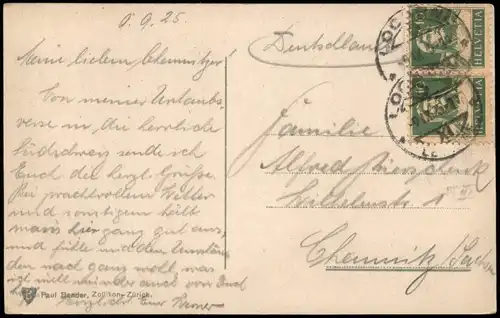 9.9.25.
Meine lieben Chemnitzer!
Von meiner Urlaubs-
reise in die herrliche
Südschweiz sende ich
Euch die herzl. Grüße.
Bei prachtvollem Wetter
und sonstigem hält
mans hier ganz gut aus,
und fühle den Umstän-
den nach ganz wohl, was
ich
auch von Euch
Herzlichst Euer
Deutschland
Familie
Alfred
1
Chemnitz/Sachsen
HELVETIA
HELVETIA
LOC
LOC
Paul Bender, Zollikon-Zürich.